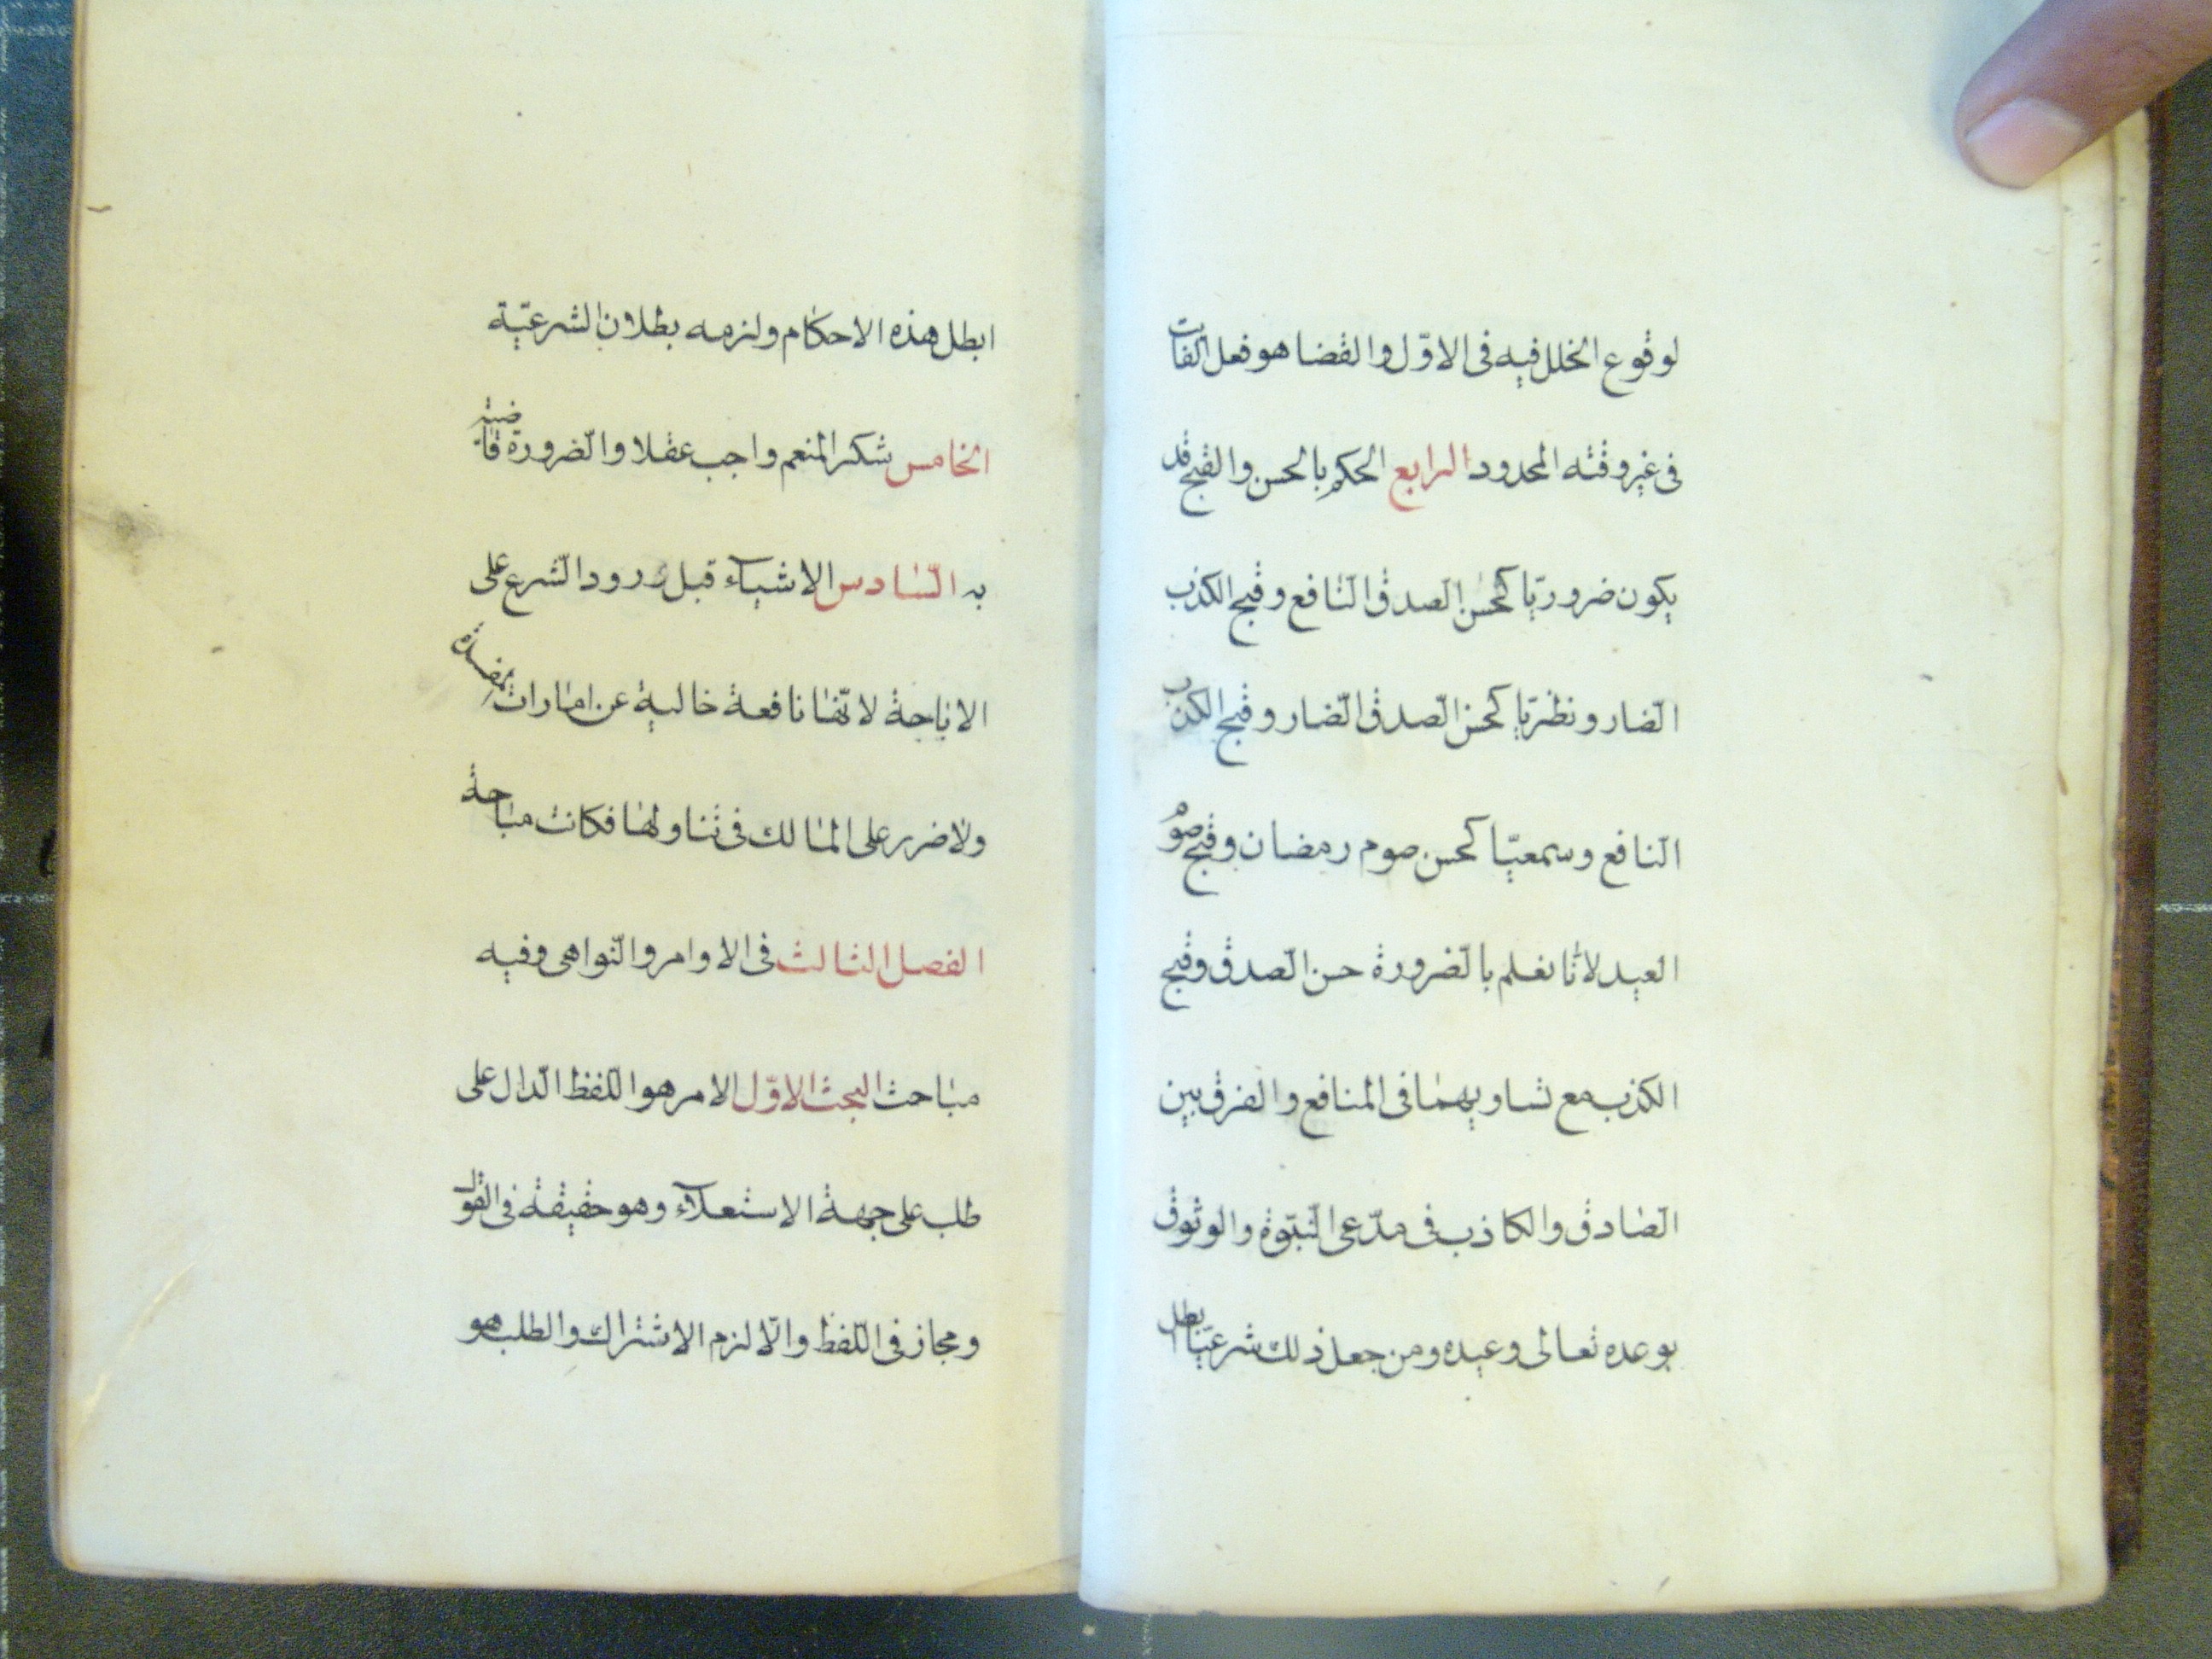 لوقوع الخلل فيه فى الاوّل والقضا هو فعل الفائت
فى غير وقته المحدود الرابع الحكم بالحسن والقبح قد
يكون ضروريّا كحسن الصدق النّافع وقبح الكذب
الضّار ونظريّا كحسن الصّدق الضّار وقبح الكذب
النّافع وسمعيّا كحسن صوم رمضان وقبح صوم
العيد لانّا نعلم بالضّرورة حسن الصّدق وقبح
الكذب مع تساويهما فى المنافع والفرق بين
الصّادق والكاذب فى مدّعى النّبوّة والوثوق
بوعده تعالى وعيده ومن جعل ذلك شرعيّا بطل
ابطل هذه الاحكام ولزمه بطلان الشرعيّة
الخامس شكر المنعم واجب عقلا والضّرورة قاضية
به السّادس الاشيآء قبل ورود الشّرع على
الاباحة لانّها نافعة خالية عن امارات مفسدة
ولا ضرر على المالك فى تناولها فكانت مباحة
الفصل الثالث فى الاوامر والنّواهى وفيه
مباحث البحث الاوّل الامر هو اللّفظ الدّال على
طلب على جهة الاستعلآء وهو حقيقة فى القول
ومجاز فى اللّفظ والّا لزم الاشتراك والطلب هو